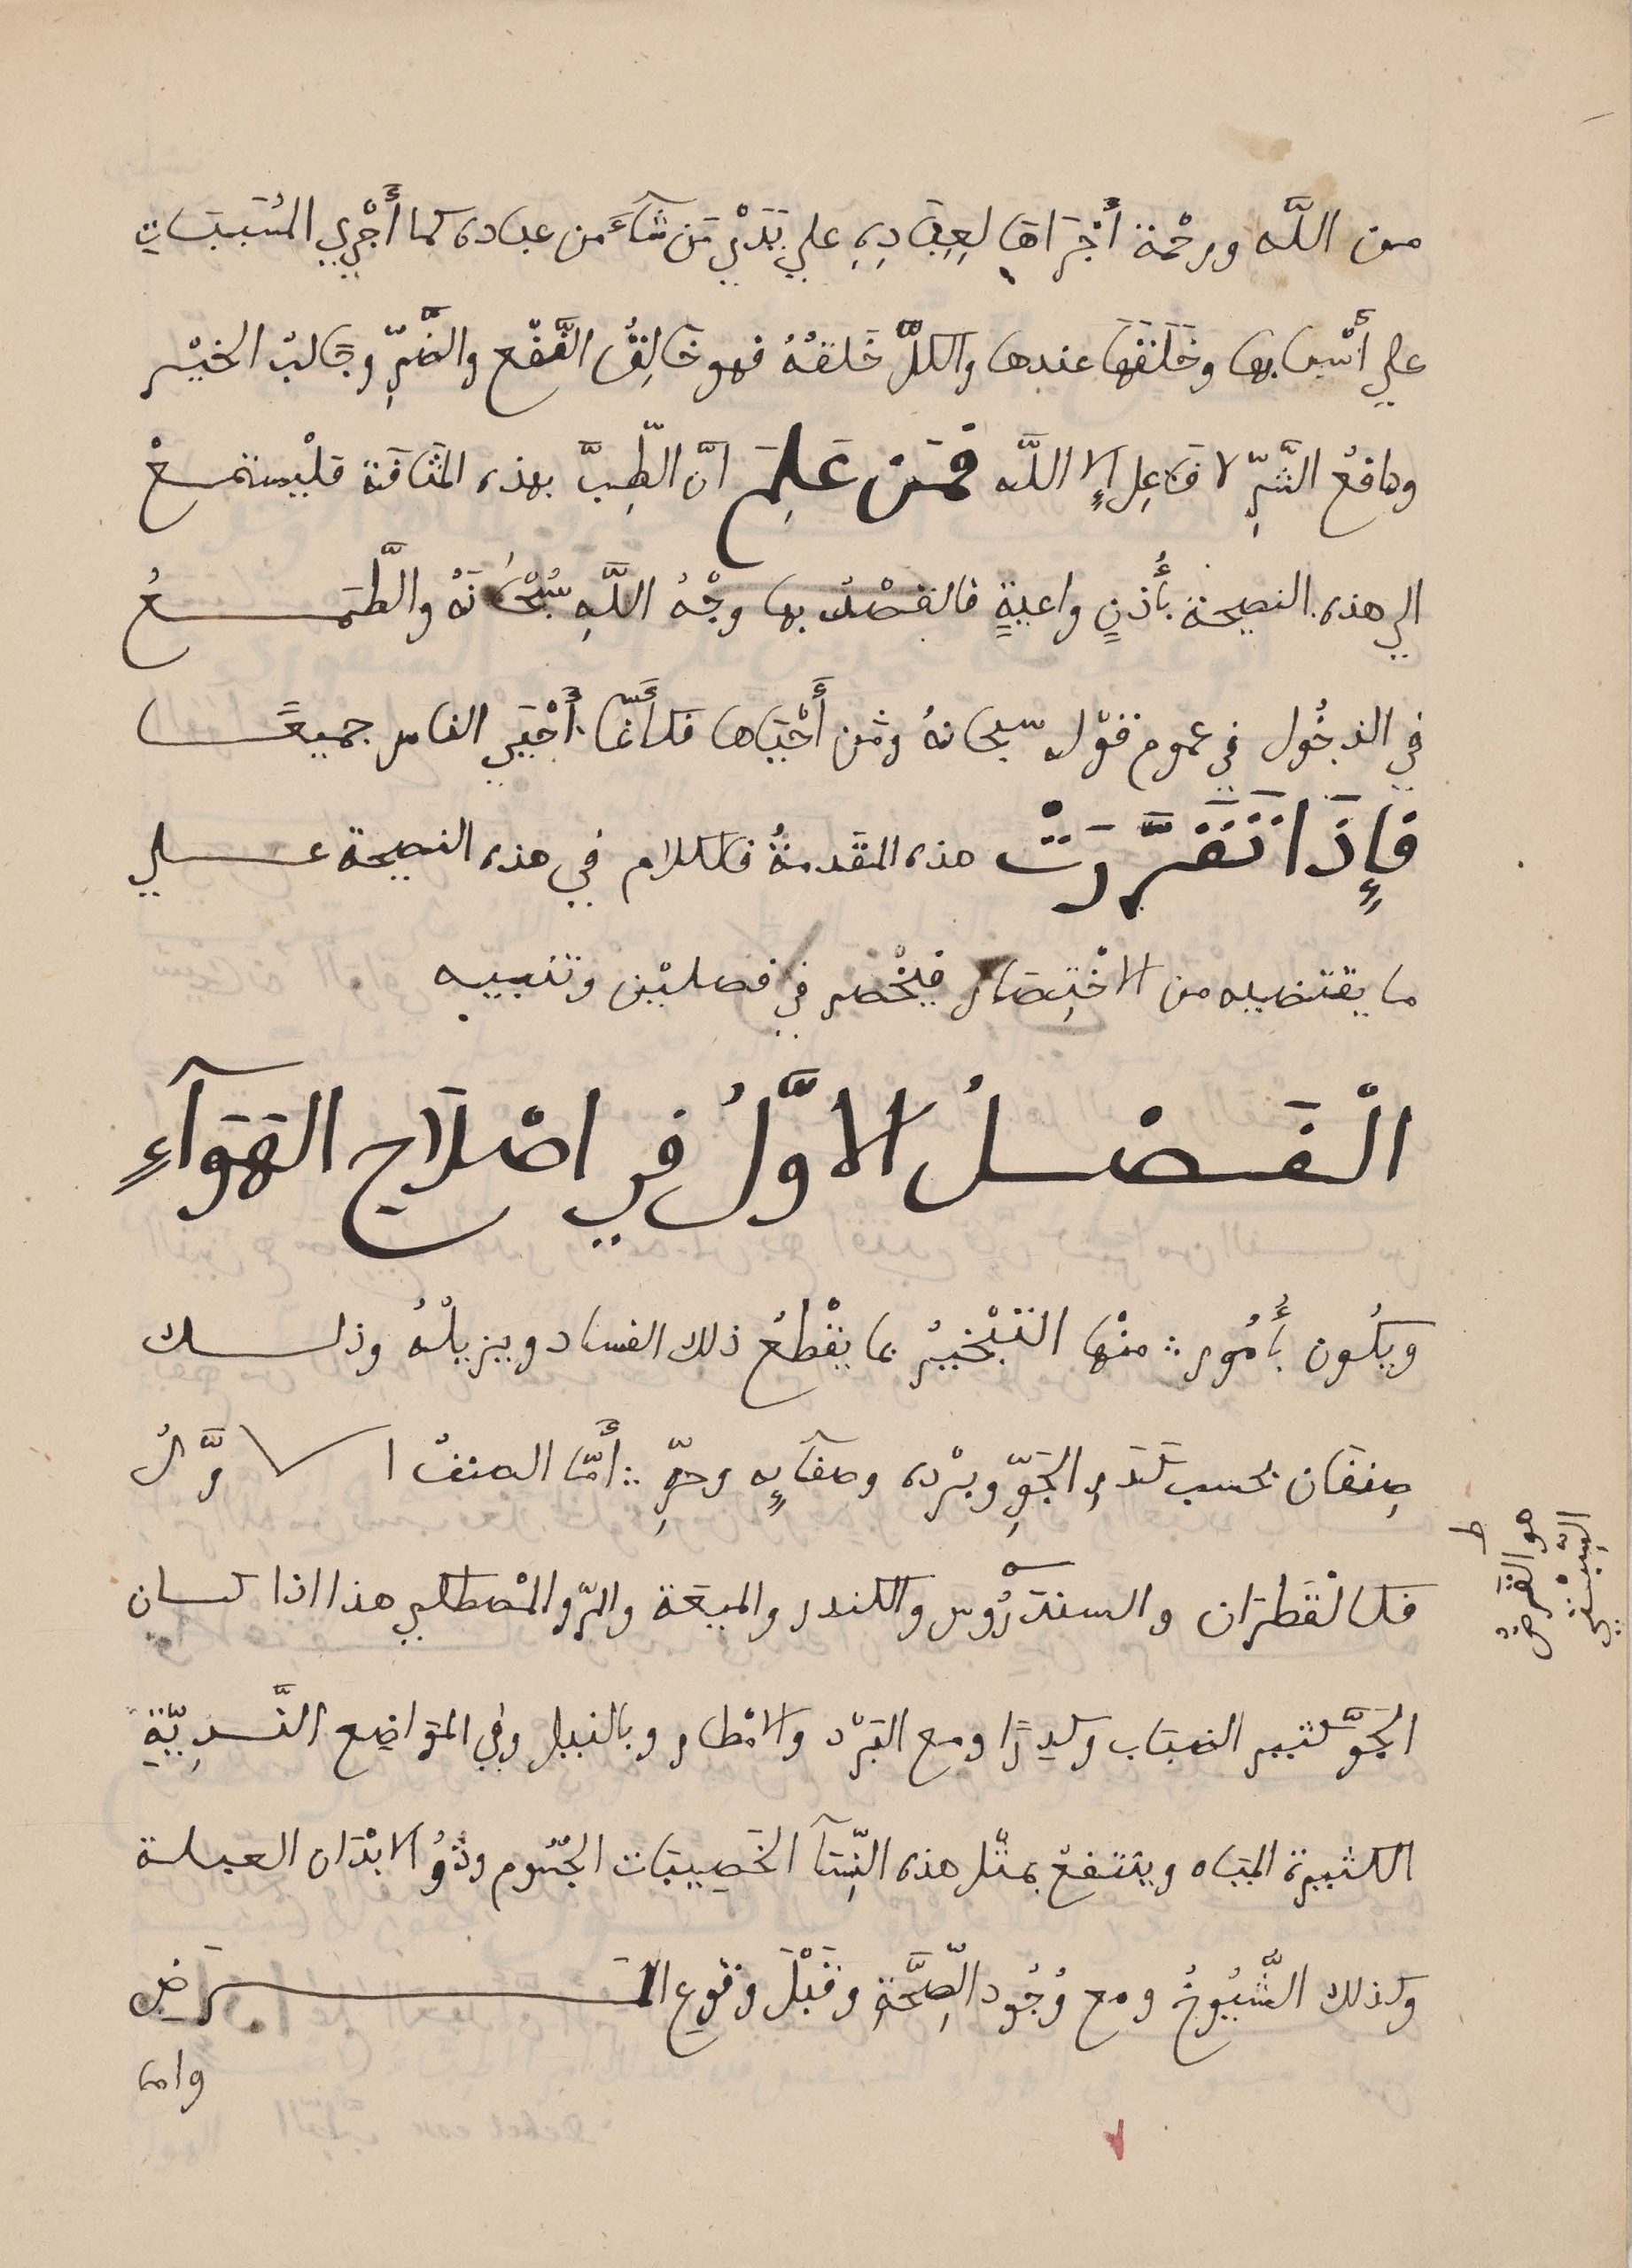 من اللَّه ورحْمة أَجْرَاهَا لِعِبَادِهِ علي يَدَيْ مَن شآءَ من عباده كما أَجْرِي المُسَبَبَات
علي أَسْبابها وخَلَقَهَا عندها والكلُّ خَلقهُ فهو خَالِقُ النَّفع والضَّرِّ وجَالبُ الخيْر
ودافعُ الشَّرِّ لا فَاعِل إلا اللَّه فمَن عَلِمَ انَّ الطِبَّ بهذه المثَافَة فليْستمعْ
الي هذه النصيحة بأُذنٍ واعيةٍ فالقصْدُ بها وجْهُ اللَّهِ سُبْحَانَهُ والطَّمَعُ
في الدخُول في عموم قوْله سبحانهُ ومَن أَحْيَاها فكأَنَّمَا أَحْيَي الناس جميعًا
فَإِذَا تَقَرَّرَتْ هذه المقَدمةُ فالكلام في هذه النصيحة علي
ما يقتضيه من الاخْتِصَار فينْحْصر في فصليْن وتنبيه
الْفَصْلُ الاوَّلُ في اصْلَاحِ الهَوَآءِ
ويكُون بأُمُور ؞ منْها التبْخيرُ بما يقْطعُ ذلك الفساد ويزيلُهُ وذلك
صِنفَان بحسب كَدَرِ الجَوِّ وبرْده وصفَآيِه وحرِّهِ ؞ أَمَّا الصنفُ الاوَّلُ
فكالْقَطرَان والسندَرُوس والكندر والميعَة والمرّ والمصْطكي هذا اذا كان
الجَوُّ كثير الضبَاب وكدِرًا ومع البَرْد والامْطار وبالليل وفي المَوَاضِع النَّدِيَّةِ
الكثيرة الميَاه وينتفعُ بمثْل هذه النِّسَآ الخَصِيبَات الجُسُوم وذَوُ الابْدَان العبلة
وكذلك الشُّيُوخُ ومع وُجُود الصِّحَّةِ وقَبْلَ وقوع المَرَضِ
واما
ط
هو القَرَضُ